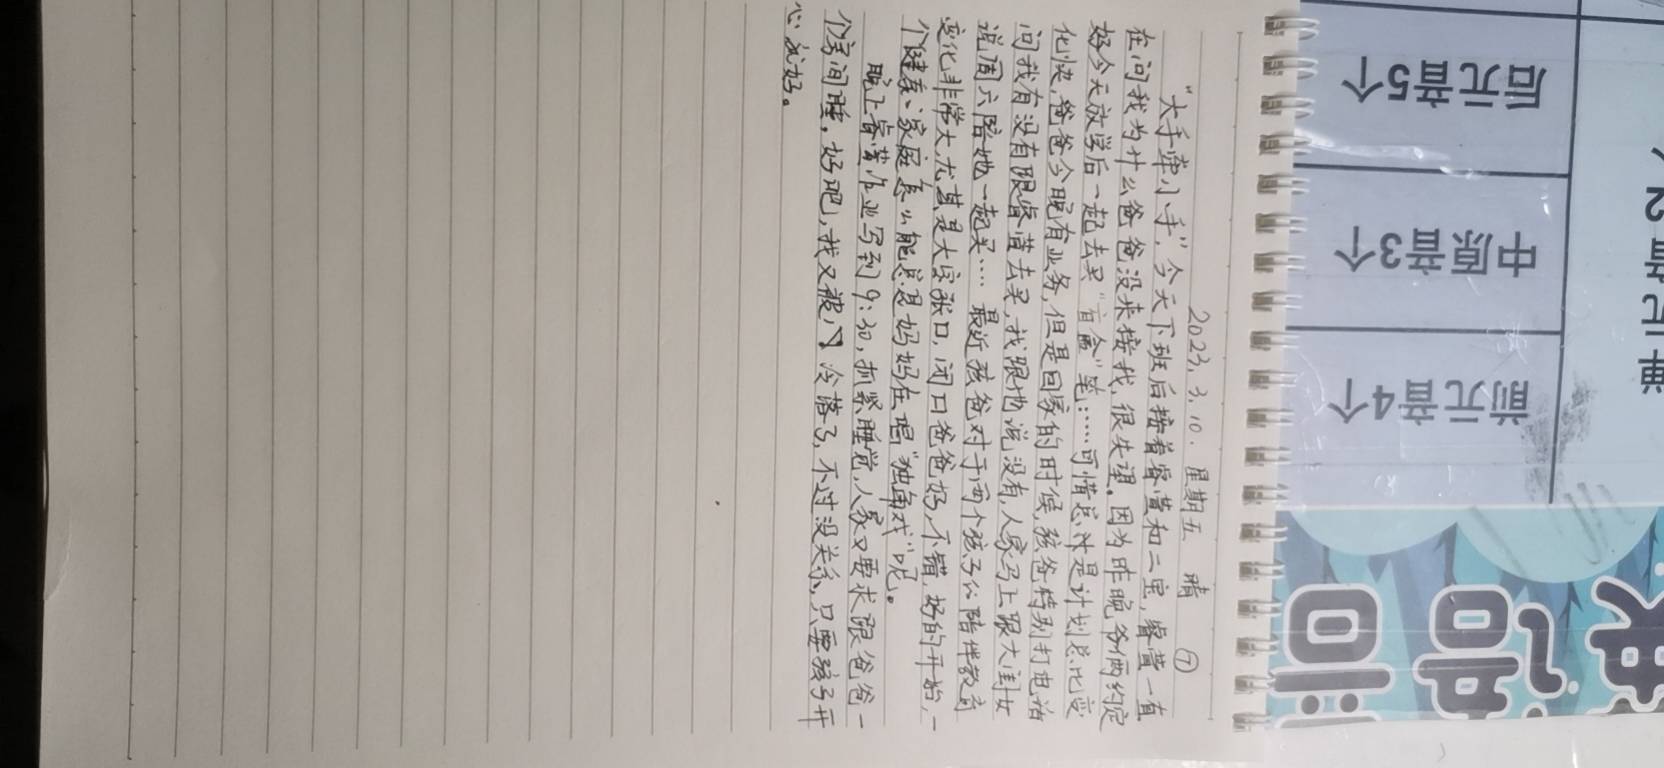 2023.3.10. 星期五 晴 ⑦
“大手牵小手”,今天下班后接着睿萱和二宝,睿萱一直
在问我为什么爸爸没来接我,很失望。因为昨晚爷俩约定
好今天放学后一起去买“盲盒”笔……可惜总
是计划总比变
化快,爸爸今晚有业务,但是回家的时候,孩爸特别打电话
问我有没有跟睿萱去买,我跟他说没有,人家马上跟大闺女
说周六陪她一起买… 最近孩爸对于两个孩子的陪伴教育
变化非常大,尤其是大宝张口,闭口爸爸好,不错 好的开始,一
个健康家庭怎么能总是妈妈在唱“独角戏”呢。
晚上睿萱作业写到9:30,抓紧睡觉,人家又要求跟爸爸一
个房间睡。好吧,我又被冷落了,不过没关系,只要孩子开
心就好。
后元音5个
中原音3个
前元音4个
单元音
2
英语